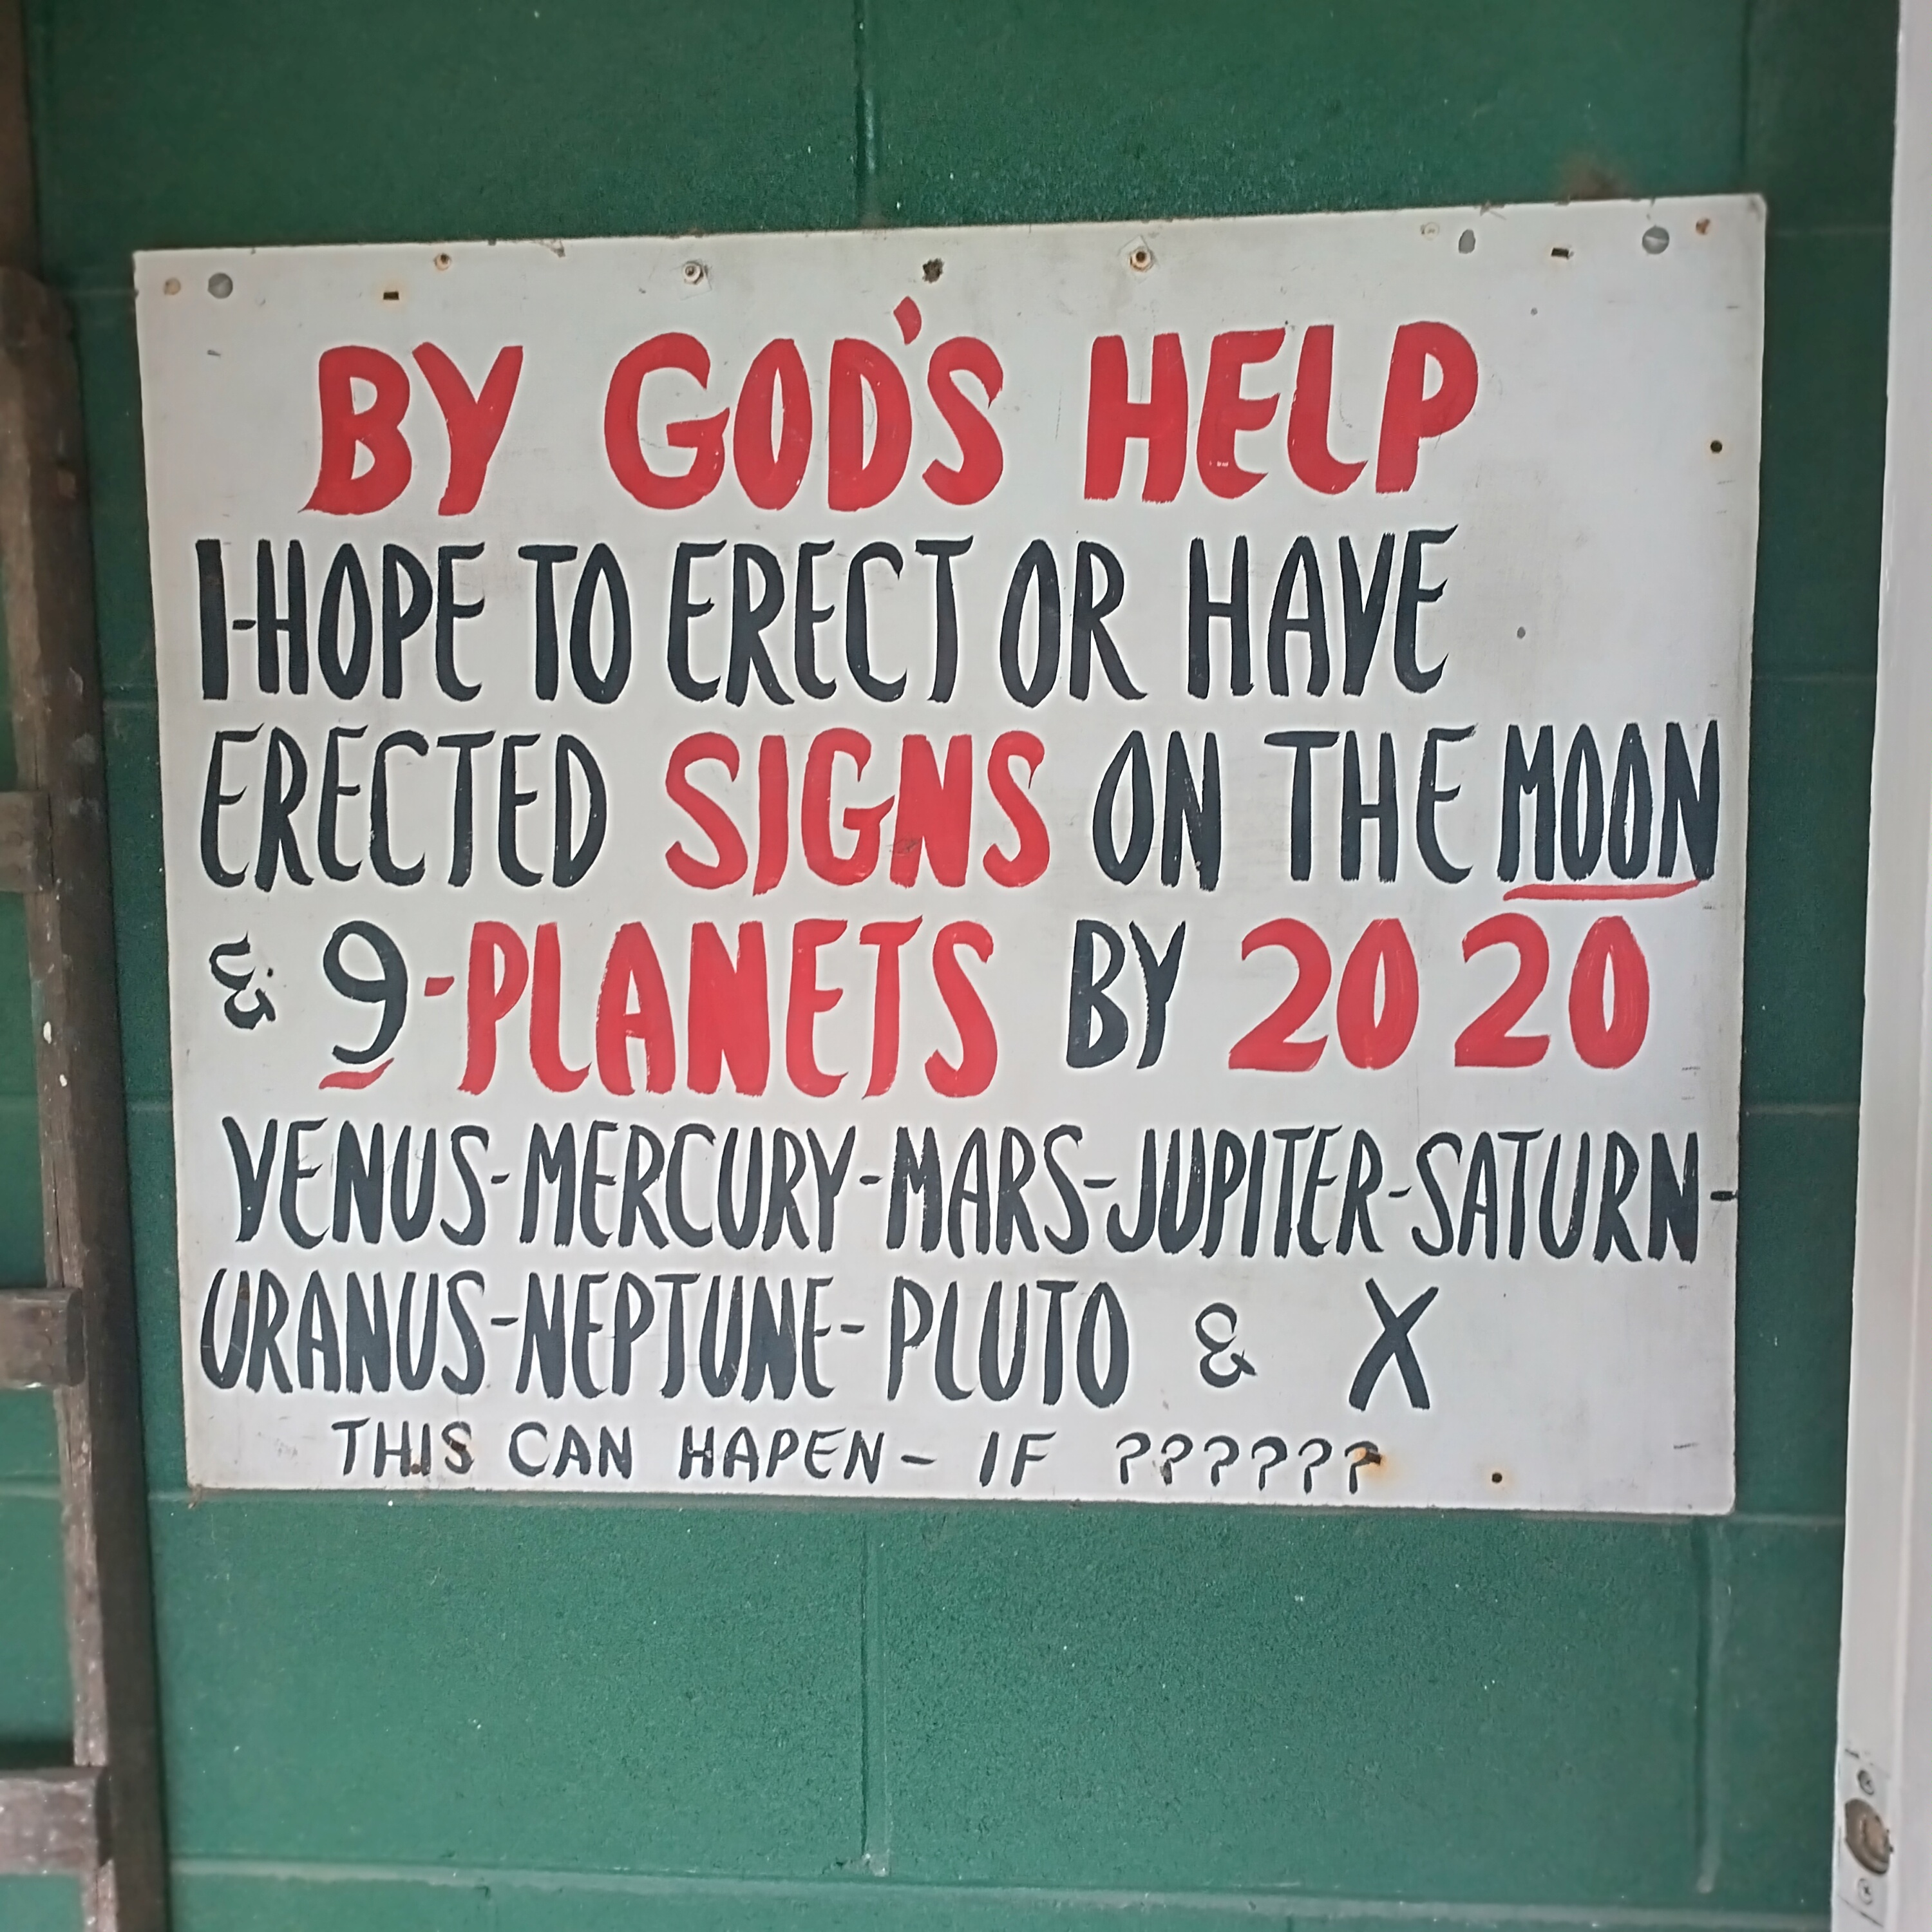 BY GOD'S HELP
I-HOPE TO ERECT OR HAVE
ERECTED SIGNS ON THE MOON
& 9-PLANETS BY 2020
VENUS-MERCURY-MARS-JUPITER-SATURN-
URANUS-NEPTUNE-PLUTO & X
THIS CAN HAPEN- IF ??????